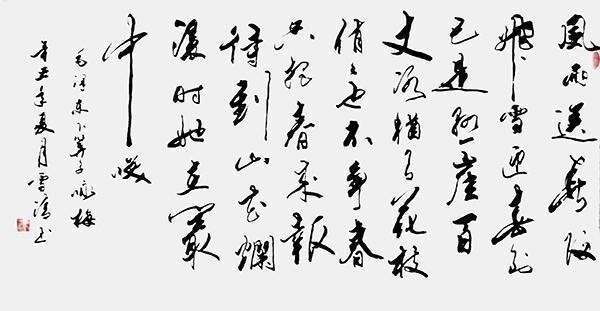 風雨送春归
飛雪迎春到
已是悬崖百
丈冰猶有花枝
俏俏也不争春
只把春来報
待到山花爛
漫时她在叢
中咲
毛泽东卜算子咏梅
辛丑年夏月雪书